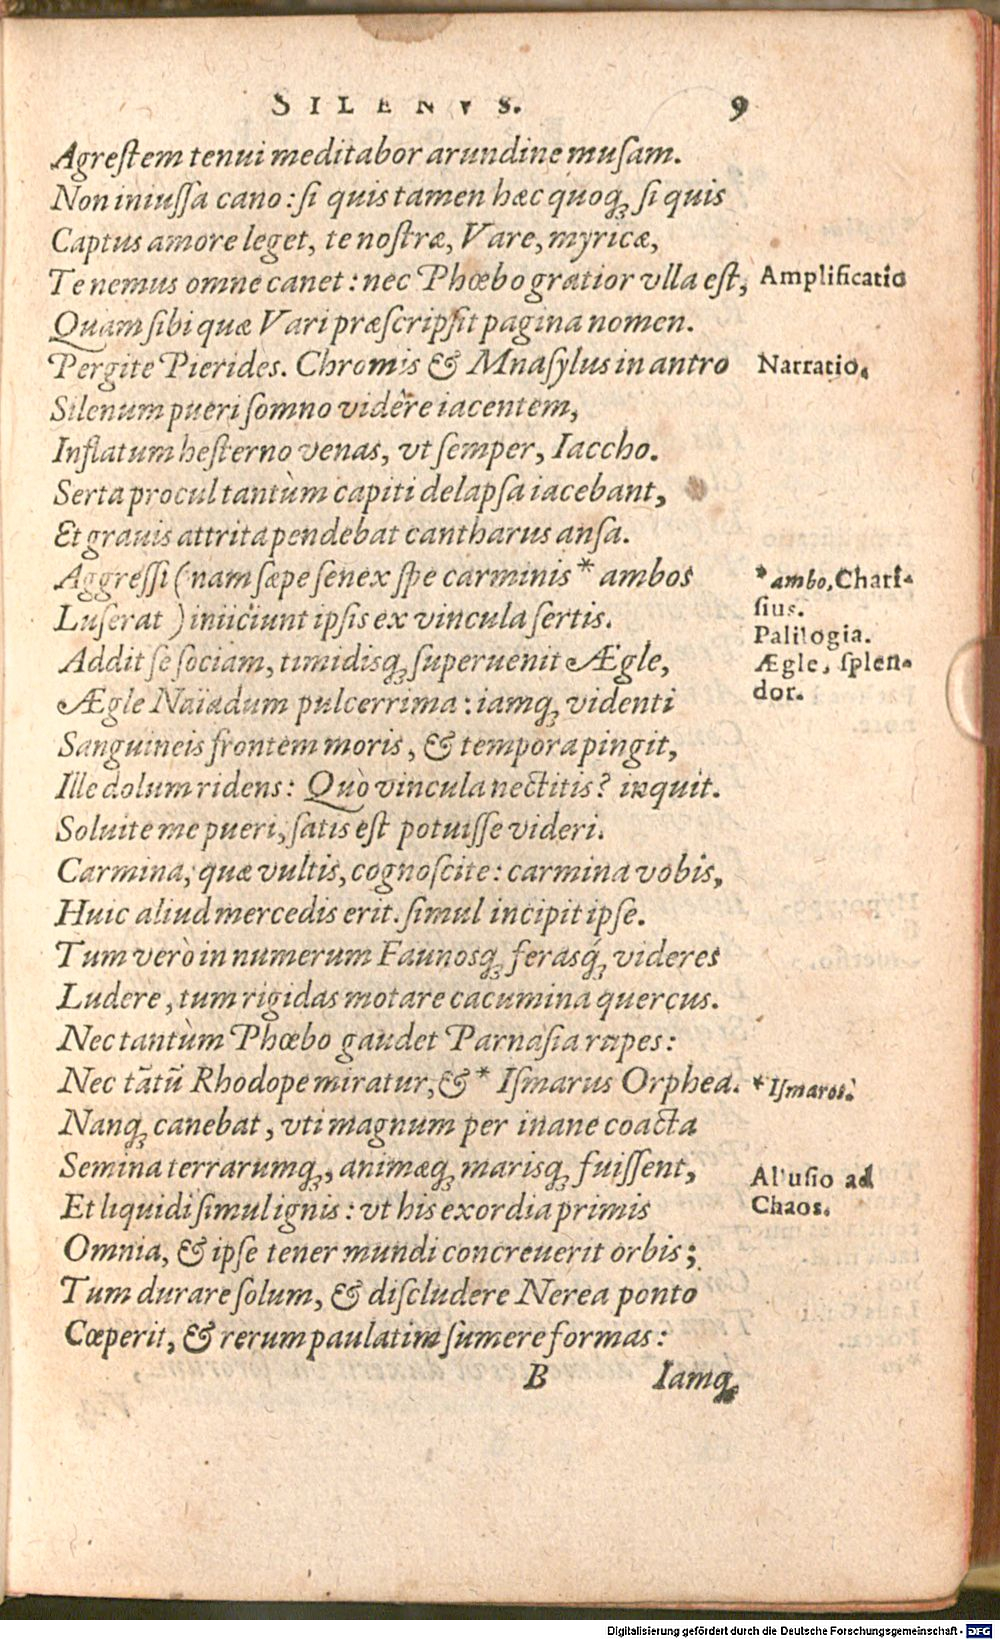 SILENVS. 9
Agreſtem tenui meditabor arundine muſam.
Non iniuſſa cano: ſi quis tamen hæc quoq; ſi quis
Captus amore leget, te noſtræ, Vare, myricæ,
Te nemus omne canet: nec Phœbo gratior vlla eſt,
Amplificatio
Quam ſibi quæ Vari præſcripſit pagina nomen.
Pergite Pierides. Chromis & Mnaſylus in antro
Narratio.
Silenum pueri ſomno vidêre iacentem,
Inflatum heſterno venas, vt ſemper, Iaccho.
Serta procul tantùm capiti delapſa iacebant,
Et grauis attrita pendebat cantharus anſa.
Aggreſſi (nam ſæpe ſenex ſpe carminis * ambos
* ambo, Chari-
Luſerat ) iniiciunt ipſis ex vincula ſertis.
ſius.
Palilogia.
Addit ſe ſociam, timidisq; ſuperuenit Ægle,
Ægle, ſplen-
Ægle Naïadum pulcerrima: iamq; videnti
dor.
Sanguineis frontem moris, & tempora pingit,
Ille dolum ridens: Quò vincula nectitis? inquit.
Soluite me pueri, ſatis eſt potuiſſe videri.
Carmina, quæ vultis, cognoſcite: carmina vobis,
Huic aliud mercedis erit. ſimul incipit ipſe.
Tum verò in numerum Faunosq; ferasq́; videres
Ludere, tum rigidas motare cacumina quercus.
Nec tantùm Phœbo gaudet Parnaſia rupes:
Nec tãtũ Rhodope miratur, & * Iſmarus Orphea.
* Iſmaros.
Nanq; canebat, vti magnum per inane coacta
Semina terrarumq;, animæq; marisq; fuiſſent,
Alluſio ad
Et liquidi ſimul ignis: vt his exordia primis
Chaos.
Omnia, & ipſe tener mundi concreuerit orbis;
Tum durare ſolum, & diſcludere Nerea ponto
Cœperit, & rerum paulatim ſumere formas:
B Iamq;
Digitalisierung gefördert durch die Deutsche Forschungsgemeinschaft - DFG